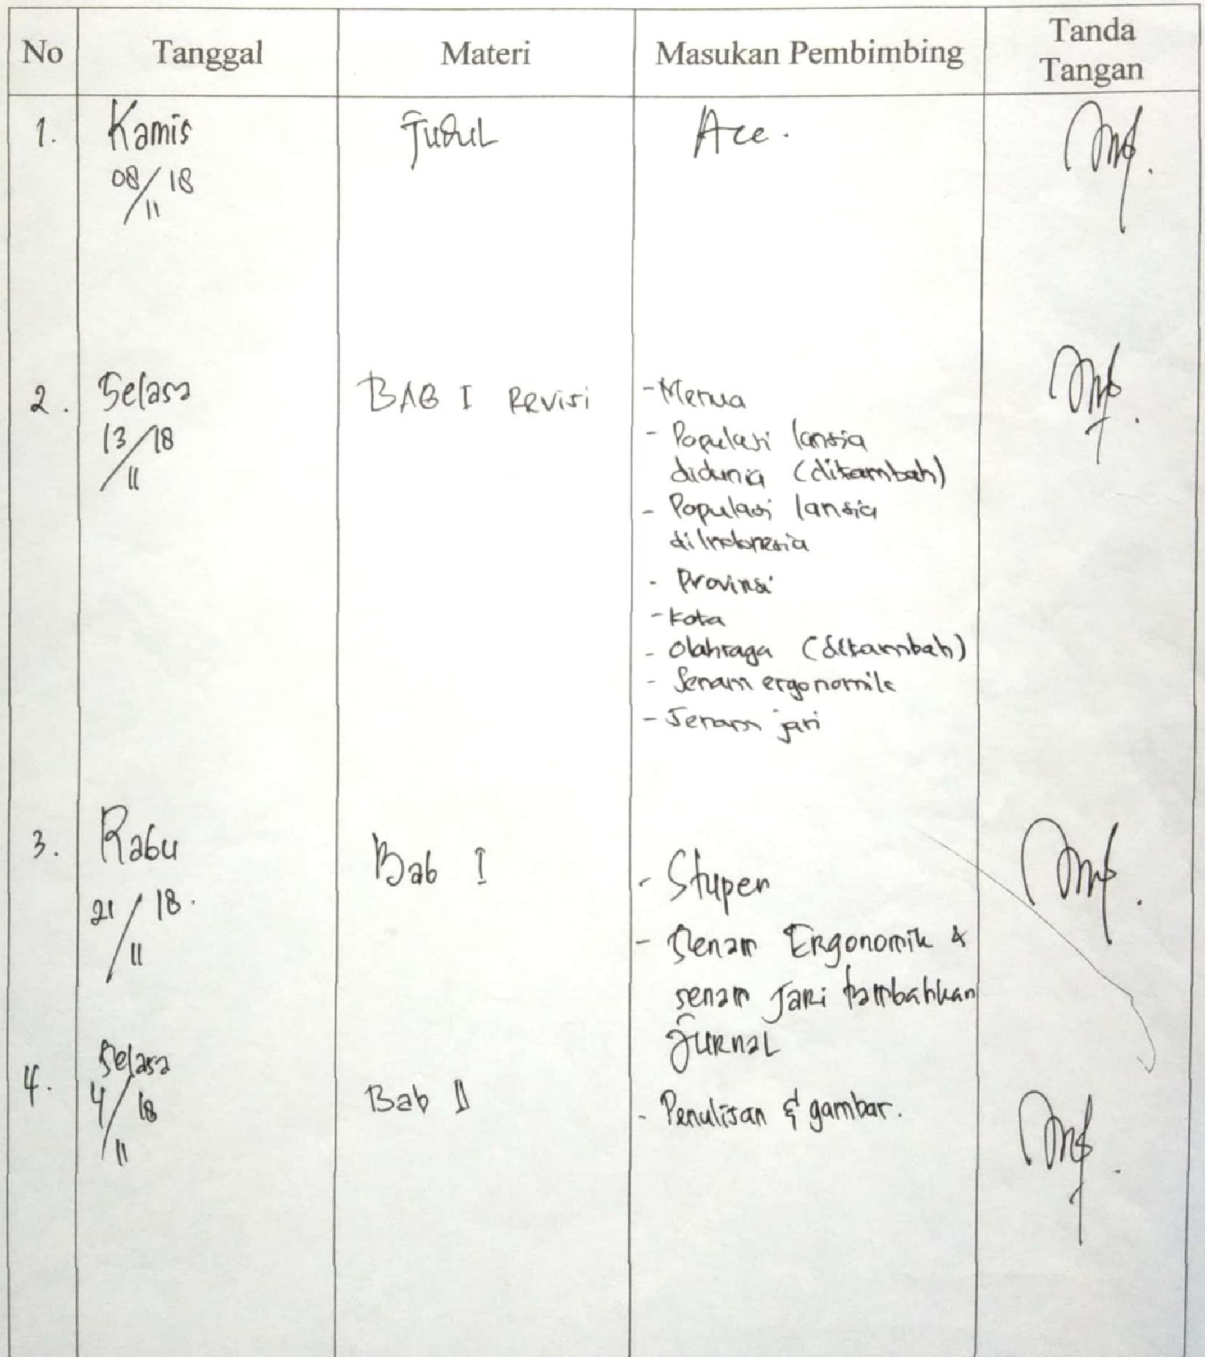 No Tanggal Materi Masukan Pembimbing Tanda
Tangan
1. Kamis Judul Acc.
08/18
11
2. Selasa BAB I Revisi - Menua
13/18 - Populasi lansia
11 didunia (ditambah)
- Populasi lansia
diIndonesia
- Provinsi
- Kota
- Olahraga (ditambah)
- Senam ergonomik
- Senam jari
3. Rabu Bab I - Stupen
21/18.
11 - Senam Ergonomik &
senam Jari tambahkan
Jurnal
4. Selasa Bab II - Penulisan & gambar.
4/18
11